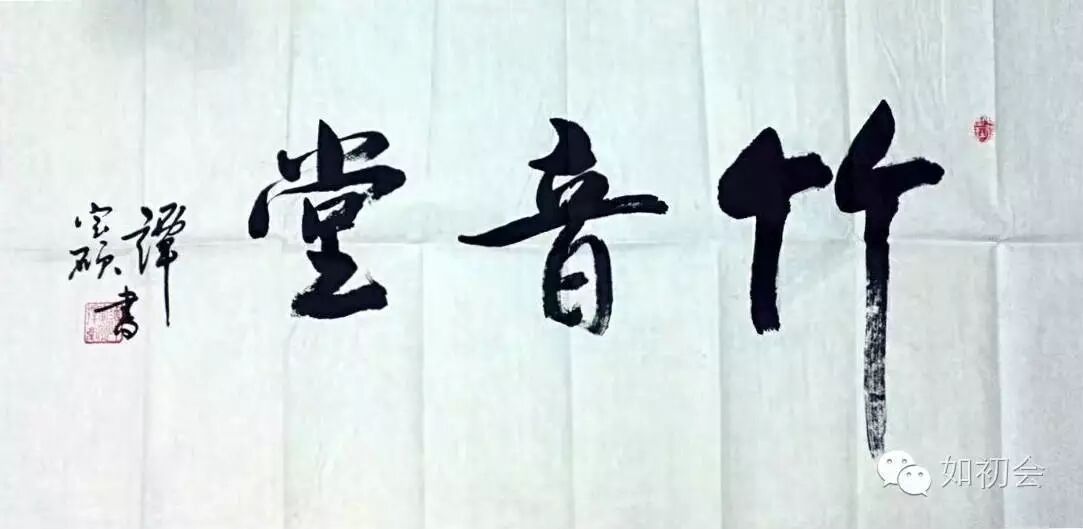 竹音堂
譚
宝硕書
如初会